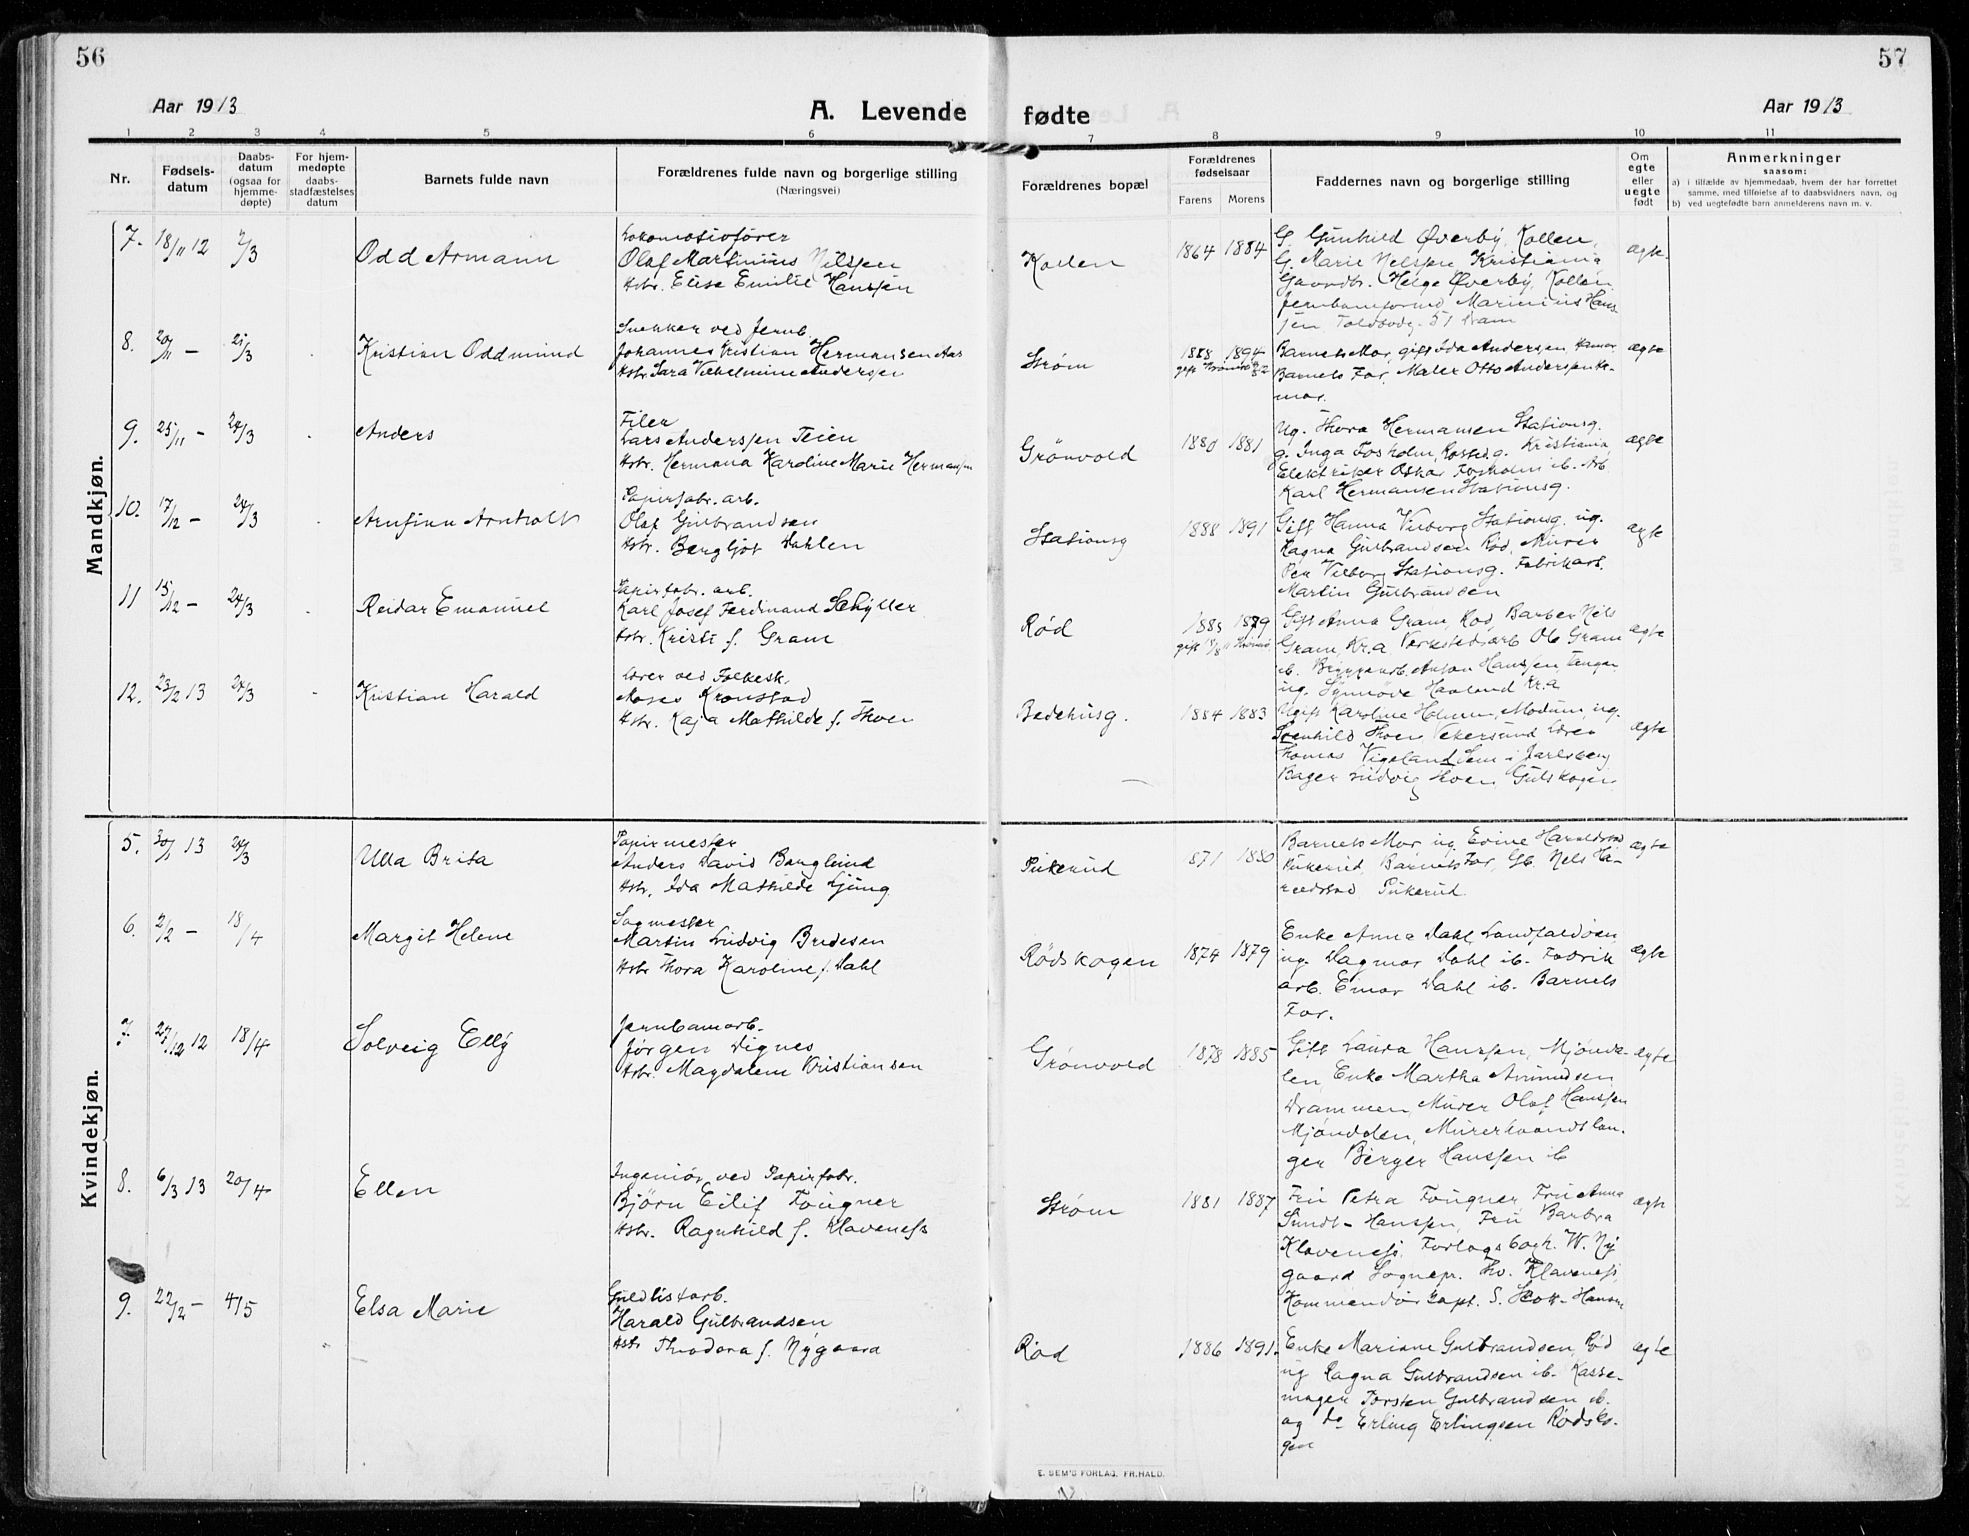 56
57
Aar 1913
A. Levende
fødte
Aar 1913
1 2 3 4 5 6 7 8 9 10 11
Nr.
Fødsels-
datum
Daabs-
datum
(ogsaa for
hjemme-
døpte)
For hjem-
medøpte
daabs-
stadfæstelses
datum
Barnets fulde navn
Forældrenes fulde navn og borgerlige stilling
(Næringsvei)
Forældrenes bopæl
Forældrenes
fødselsaar
Farens
Morens
Faddernes navn og borgerlige stilling
Om
egte
eller
uegte
født
Anmerkninger
saasom:
a) i tilfælde av hjemmedaab, hvem der har forrettet
samme, med tilføielse af to daabsvidners navn, og
b) ved uegtefødte barn anmelderens navn m. v.
Mandkjøn.
7. 18/11 12
Odd Armann
Lokomotivfører
Olaf Martinius Nilssen
Hstr. Elise Emilie Hanssen
Kollen
1864 1884
G. Gunhild Øverby, Kollen,
G. Marie Nilssen Kristiania
Gaardbr. Helge Øverby, Kollen
Marinius Hans-
sen Toldbodg. 51 Dram
ægte
8. 20/11 - 21/3
Kristian Oddmund
Snekker ved Jernb.
Johannes Kristian Hermansen Aas
Hstr. Sara Vilhelmine Andersen
Strøm
1888 1894
Barnets Mor, gift Ida Andersen Hamar
Barnets Far, Maler Otto Andersen Ha-
mar.
ægte
9. 25/11 - 24/3
Anders
Filer
Lars Anderssen Teien
Hstr. Hermana Karoline Marie Hermansen
Grønvold
1880 1881
Ug. Thora Hermansen Stationsg.
g. Inga Fosholm, Rosseg. Kristiania
Elektriker Oskar Fosholm ib. Arb.
Karl Hermansen Stationsg.
ægte
10. 17/12 - 24/3
Arnfinn Arnholt
Papirfabr. arb.
Olaf Gulbrandsen
Hstr. Bergljot Dahlen
Stationsg
1888 1891
Gift Hanna Viborg Stationsg. ug.
Ragna Gulbrandsen Rød, Murer
Per Viborg Stationsg. Fabrikarb.
Martin Gulbrandsen
ægte
11 15/12 - 24/3
Reidar Emanuel
Papirfabr. arb.
Karl Josef Ferdinand Schyller
Hstr. Kristi f. Gram
Rød
1879
Gift Anna Gram, Rød, Barber Nils
Gram, Kr.a Verkstedsarb Ole Gram
ib. Bryggearb. Anton Hanssen Tangen
ug. Synnøve Havland Kr.a
ægte
12. 23/2 13 24/3
Kristian Harald
Lærer ved Folkesk.
Moses Kronstad
Hstr. Kaja Mathilde f. Thoen
Bedehusg.
1884 1883
Ugift Karoline Holmen, Modum, ug.
Svenhild Thoen Vikersund Lærer
Thomas Vigeland Sem i Jarlsberg
Bager Ludvig Thoen Gulskogen
ægte
Kvindekjøn.
5. 30/1 13 24/3
Ulla Brita
Papirmester
Anders David Berglund
Hstr. Ida Mathilde Ljung
Pukerud
871 1880
Barnets Mor ug. Evine Haraldstad
Pukerud, Barnets Far, Gb. Nils Ha-
raldstad Pukerud
ægte
6. 2/2 - 18/4
Margit Helene
Sagmester
Martin Ludvig Bredesen
Hstr Thora Karoline f. Dahl
Rødskogen
1874 1879
Enke Anna Dahl, Landfaldøen
ug. Dagmar Dahl ib. Fabrik
arb. Einar Dahl ib. Barnets
Far.
ægte
7. 27/12 12 18/4
Solveig Elly
Jernbanearb.
Jørgen Dignes
Hstr. Magdalene Kristiansen
Grønvold
1878 1885
Gift Laura Hanssen, Mjønda-
len, Enke Martha Amundsen
Drammen, Murer Olaf Hanssen
Mjøndalen, Murerhaandslan-
ger Birger Hanssen ib
ægte
8. 6/3 13 20/4
Ellen
Ingeniør ved Papirfabr.
Bjørn Eilif Fougner
Hstr. Ragnhild f. Klaveness
Strøm
1881 1887
Fru Petra Fougner, Fru Anna
Sundt-Hanssen, Fru Barbra
Klaveness, Forlagsbogh. W. Ny
gaard Sognepr. Th. Klaveness,
Kommandørkapt. S. Scott-Hansen
ægte
9. 22/2 - 4/5
Elsa Marie
Guldlistarb.
Harald Gulbrandsen
Hstr Theodora f. Nygaard
Rød
1886 1891.
Enke Mariane Gulbrandsen, Rød
ug Ragna Gulbrandsen ib. Kasse-
mager Torsten Gulbrandsen ib.
og do Erling Erlingsen Rødsko-
gen
ægte
E. SEM'S FORLAG, FR.HALD.